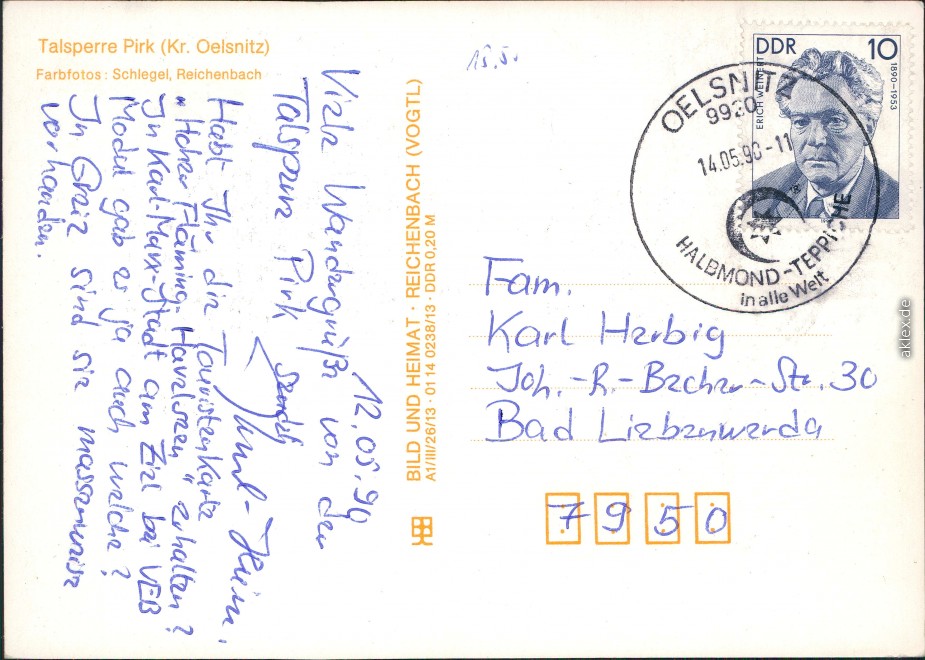 Talsperre Pirk (Kr. Oelsnitz)
Farbfotos: Schlegel, Reichenbach
15.5.
12.05.90
Viele Wandergrüße von der
Talsperre Pirk sendet
Karl-Heinz.
Habt Ihr die Touristenkarte
"Hoher Fläming-Havelseen" erhalten?
In Karl-Marx-Stadt am Ziel bei VEB
Modul gab es ja auch welche?
In Greiz sind sie massenweise
vorhanden.
BILD UND HEIMAT · REICHENBACH (VOGTL)
A1/III/26/13 · 01 14 0238/13 · DDR 0,20 M
DDR 10
ERICH WEINERT
1890–1953
OELSNITZ
9920
14.05.90-11
HALBMOND-TEPPICHE
in alle Welt
Fam.
Karl Herbig
Joh.-R.-Becher-Str. 30
Bad Liebenwerda
7950
aklex.de